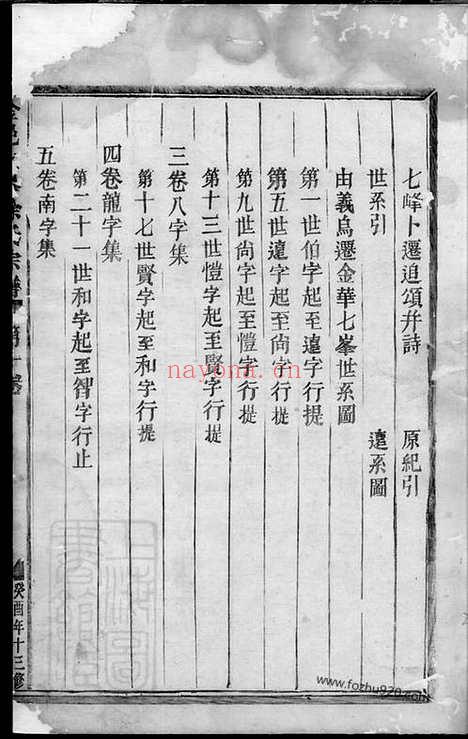 七峰卜遷追頌幷詩 原紀引
世系引 遠系圖
由義烏遷金華七峯世系圖
第一世伯字起至遠字行提
第五世遠字起至尙字行提
第九世尙字起至愷字行提
第十三世愷字起至賢字行提
三卷八字集
第十七世賢字起至和字行提
四卷龍字集
第二十一世和字起至智字行止
五卷南字集
徐氏宗譜 第一卷 癸酉年十三修
nayona.cn
www.fozhu920.com